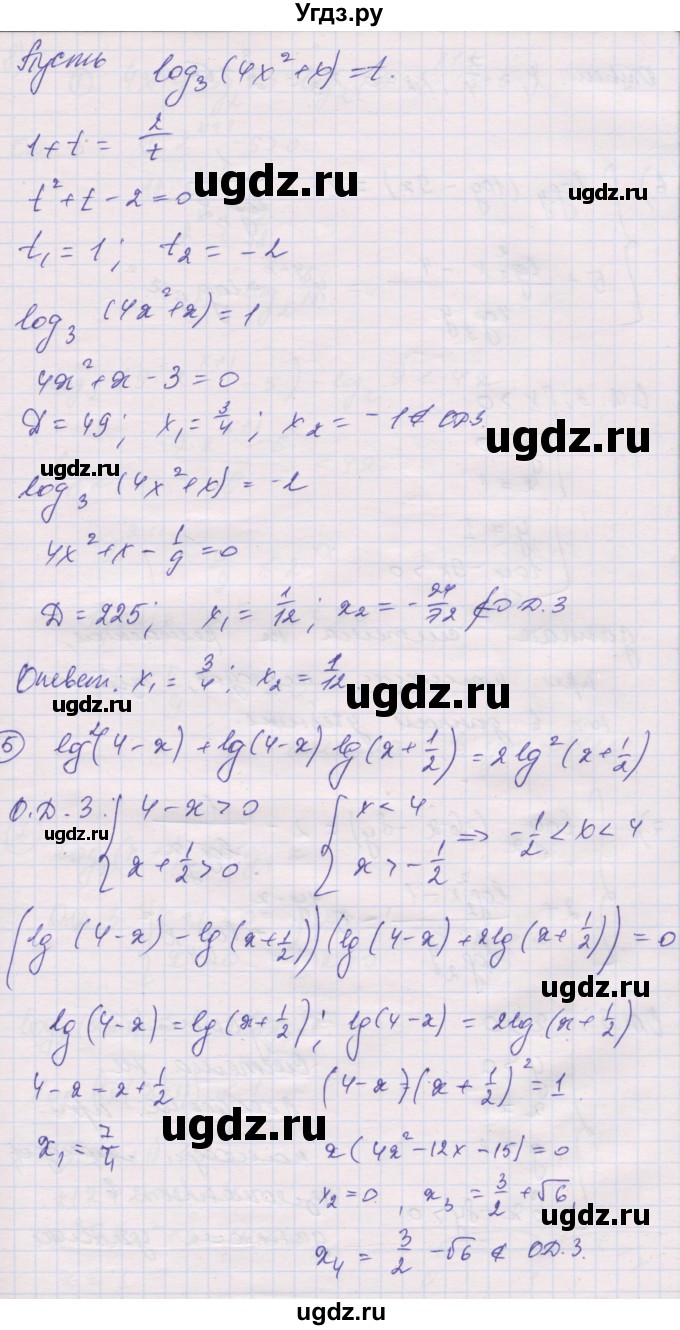 Угдз.ру
Пусть log₃(4x²+x) = t.
1+t = 2/t
t²+t-2=0
ugdz.ru ugdz.ru
t₁ = 1; t₂ = -2
log₃(4x²+x) = 1
4x²+x-3=0
D = 49; x₁ = 3/4; x₂ = -1 ∉ ОДЗ.
ugdz.ru
ugdz.ru
log₃(4x²+x) = -2
4x²+x-1/9=0
D = 225; x₁ = 1/12; x₂ = -24/72 ∉ О.Д.З
Ответ. x₁ = 3/4; x₂ = 1/12
ugdz.ru
ugdz.ru
5 lg²(4-x)+lg(4-x) lg(x+1/2)=2lg²(x+1/2)
О.Д.З. { 4-x>0 { x<4
ugdz.ru
x+1/2>0 x>-1/2 ⇒ -1/2<x<4
ugdz.ru
(lg(4-x)-lg(x+1/2))(lg(4-x)+2lg(x+1/2))=0
ugdz.ru
lg(4-x)=lg(x+1/2); lg(4-x)=2lg(x+1/2)
4-x=x+1/2 (4-x)(x+1/2)²=1
ugdz.ru
x₁=7/4 x(4x²-12x-15)=0
x₂=0, x₃=3/2+√6
ugdz.ru
x₄=3/2-√6 ∉ ОД.З.
ugdz.ru